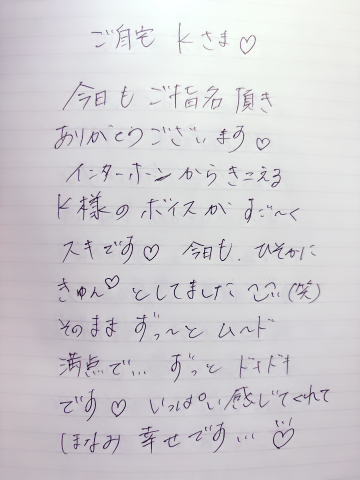 ご自宅 Kさま♡
今日も ご指名 頂き
ありがとうございます♡
インターホーンからきこえる
K様のボイスが すご〜く
スキです♡ 今日も、ひそかに
きゅん♡としてました (笑)
そのまま ずっ〜と ム〜ド
満点で… ずっと ドキドキ
です♡ いっぱい感じてくれて
ほなみ 幸せです…♡